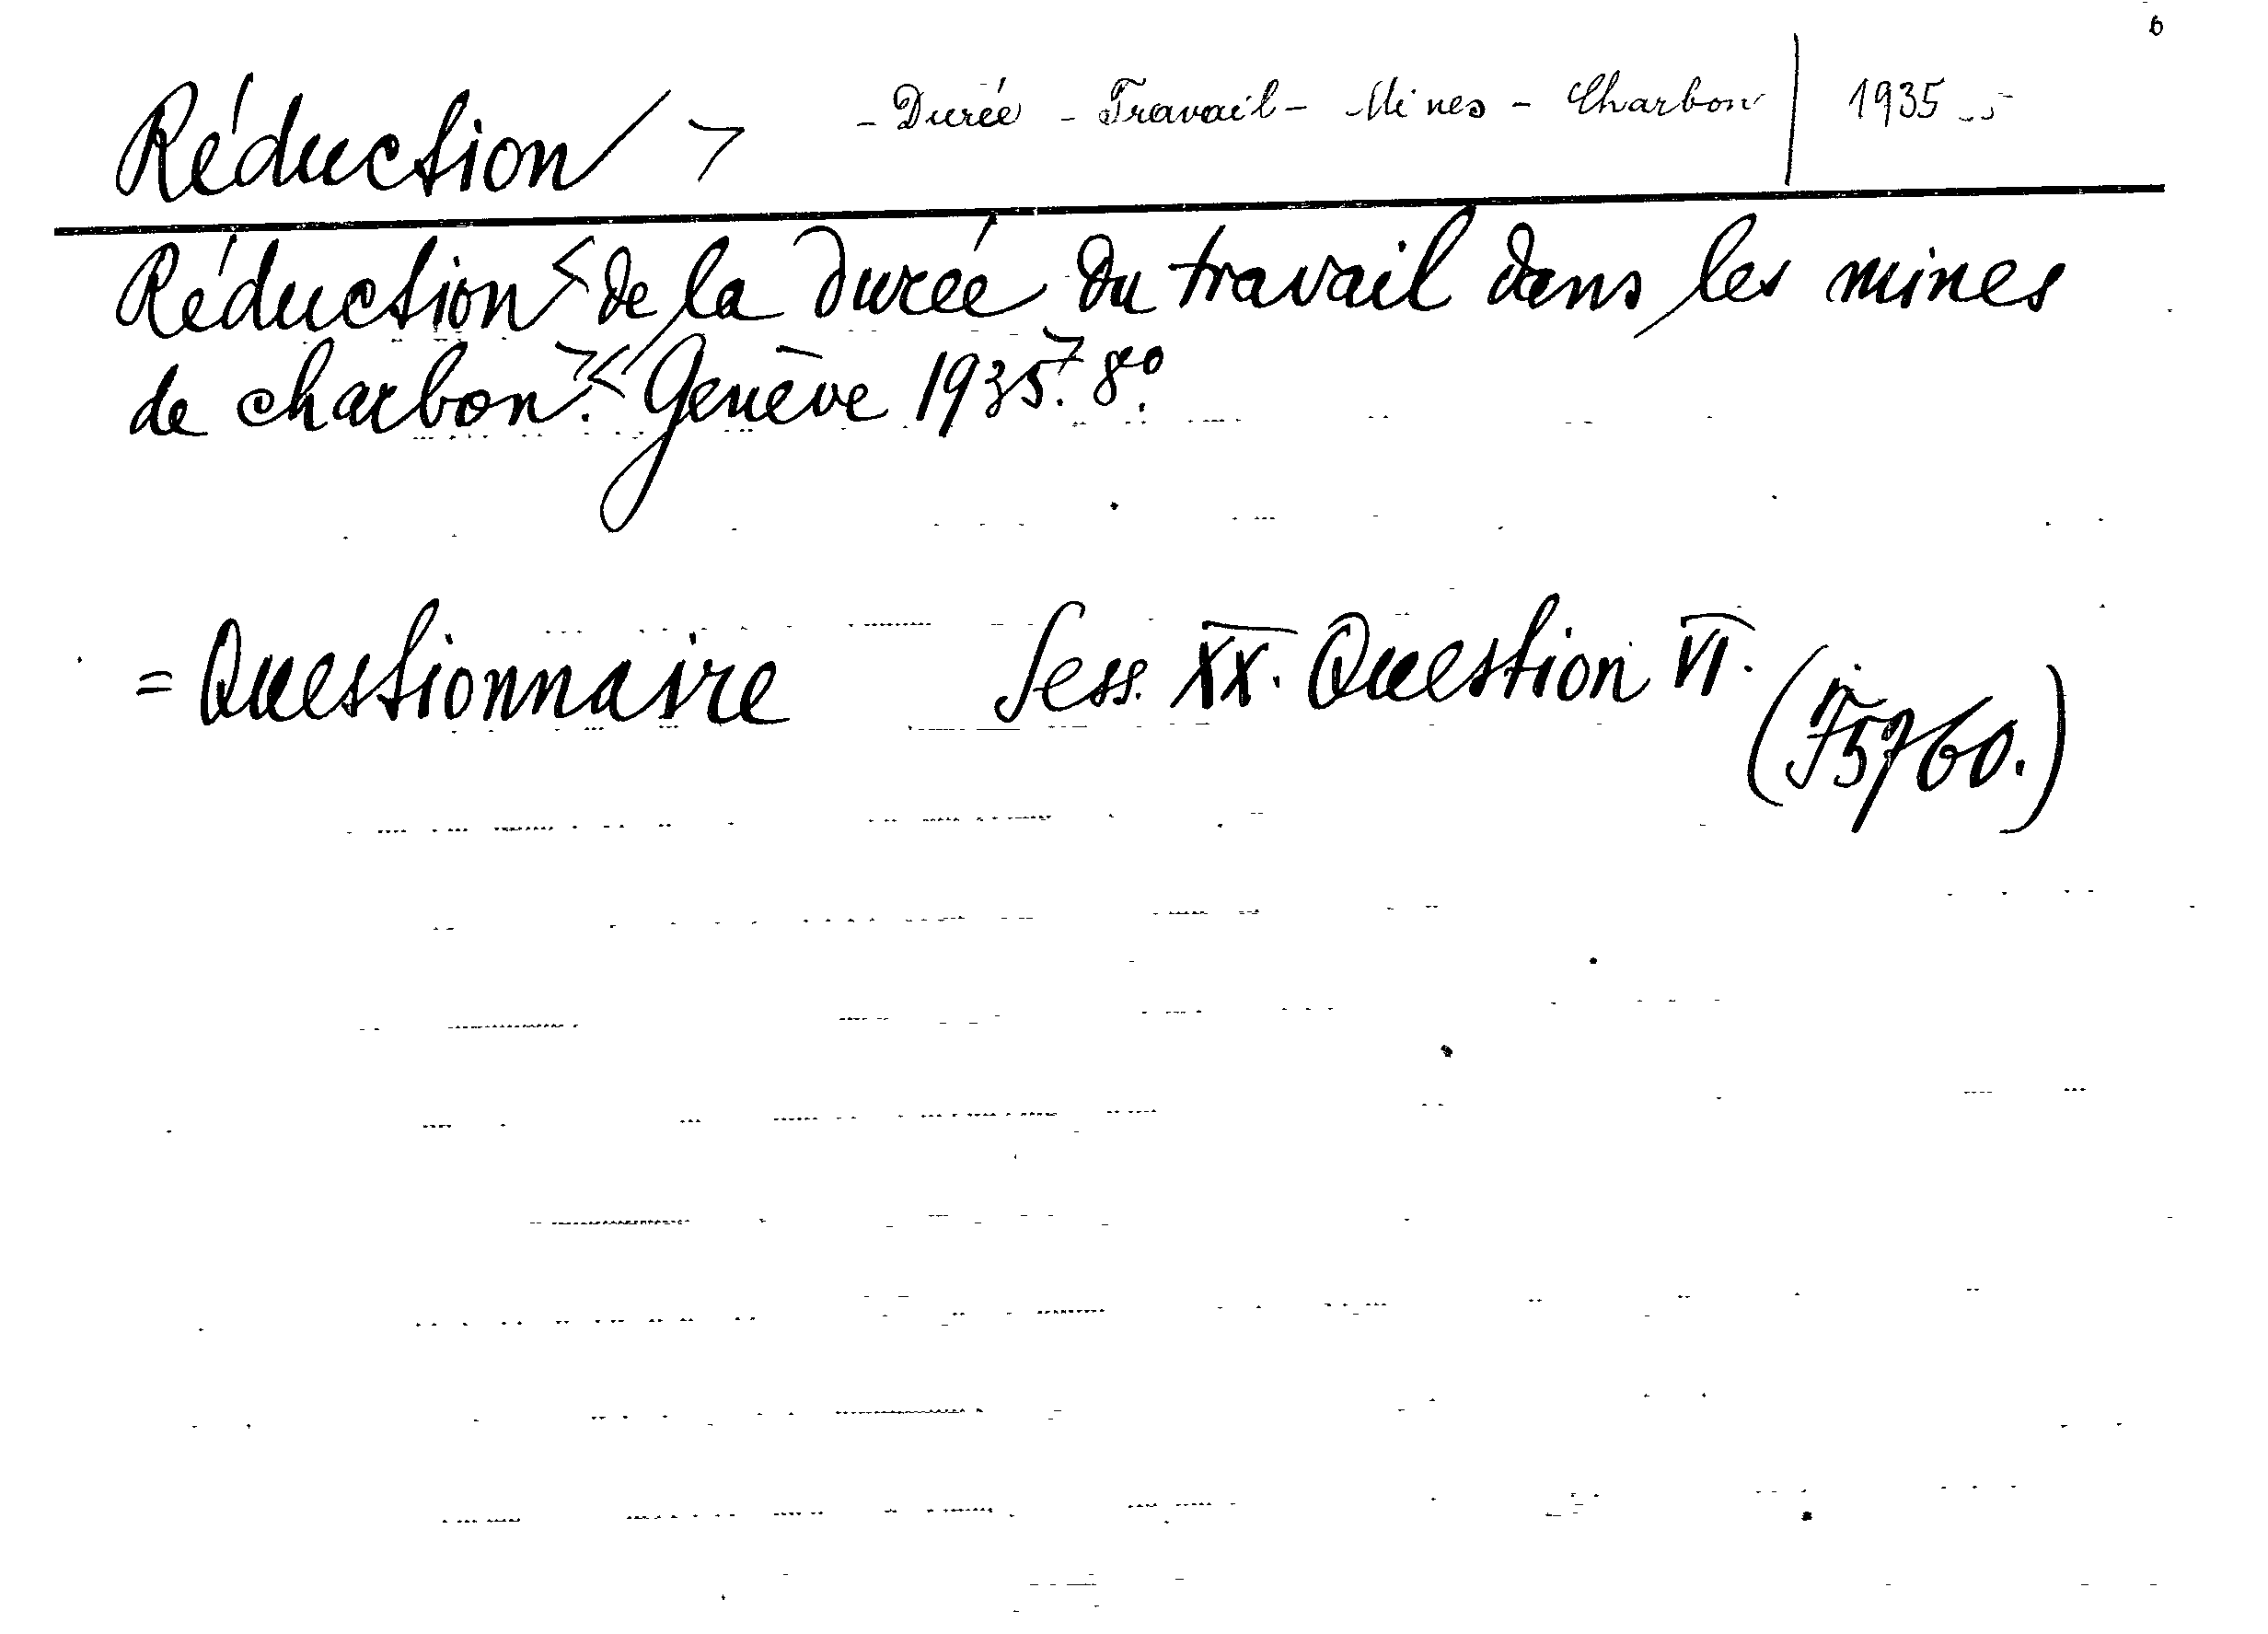 6
Réduction > - Durée - Travail - Mines - Charbon | 1935
Réduction < de la durée du travail dans les mines
de charbon. >< Genève 1935. > 8º.
= Questionnaire Sess. XX. Question VI.
5760.)